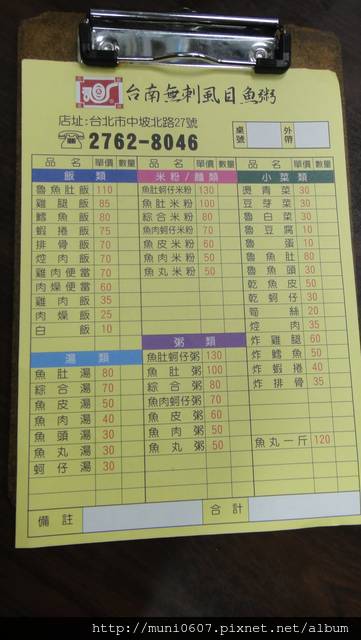 台南無刺虱目魚粥
店址:台北市中坡北路27號
☎2762-8046
桌號
外帶
品名 單價 數量 品名 單價 數量 品名 單價 數量
飯類
魯魚肚飯 110
雞腿飯 85
鱈魚飯 80
蝦捲飯 75
排骨飯 70
焢肉飯 70
雞肉便當 70
肉燥便當 60
雞肉飯 35
肉燥飯 25
白飯 10
湯類
魚肚湯 80
綜合湯 70
魚皮湯 50
魚肉湯 40
魚頭湯 30
魚丸湯 30
蚵仔湯 30
米粉/麵類
魚肚蚵仔米粉 130
魚肚米粉 100
綜合米粉 80
魚肉蚵仔米粉 70
魚皮米粉 60
魚肉米粉 50
魚丸米粉 50
粥類
魚肚蚵仔粥 130
魚肚粥 100
綜合粥 80
魚肉蚵仔粥 70
魚皮粥 60
魚肉粥 50
魚丸粥 50
小菜類
燙青菜 30
豆芽菜 30
魯白菜 30
魯豆腐 10
魯蛋 10
魯魚肚 80
魯魚頭 30
乾魚皮 50
乾蚵仔 30
筍絲 20
焢肉 35
炸雞腿 60
炸鱈魚 50
炸蝦捲 40
炸排骨 35
魚丸一斤 120
備註
合計
http://muni0607.pixnet.net/album